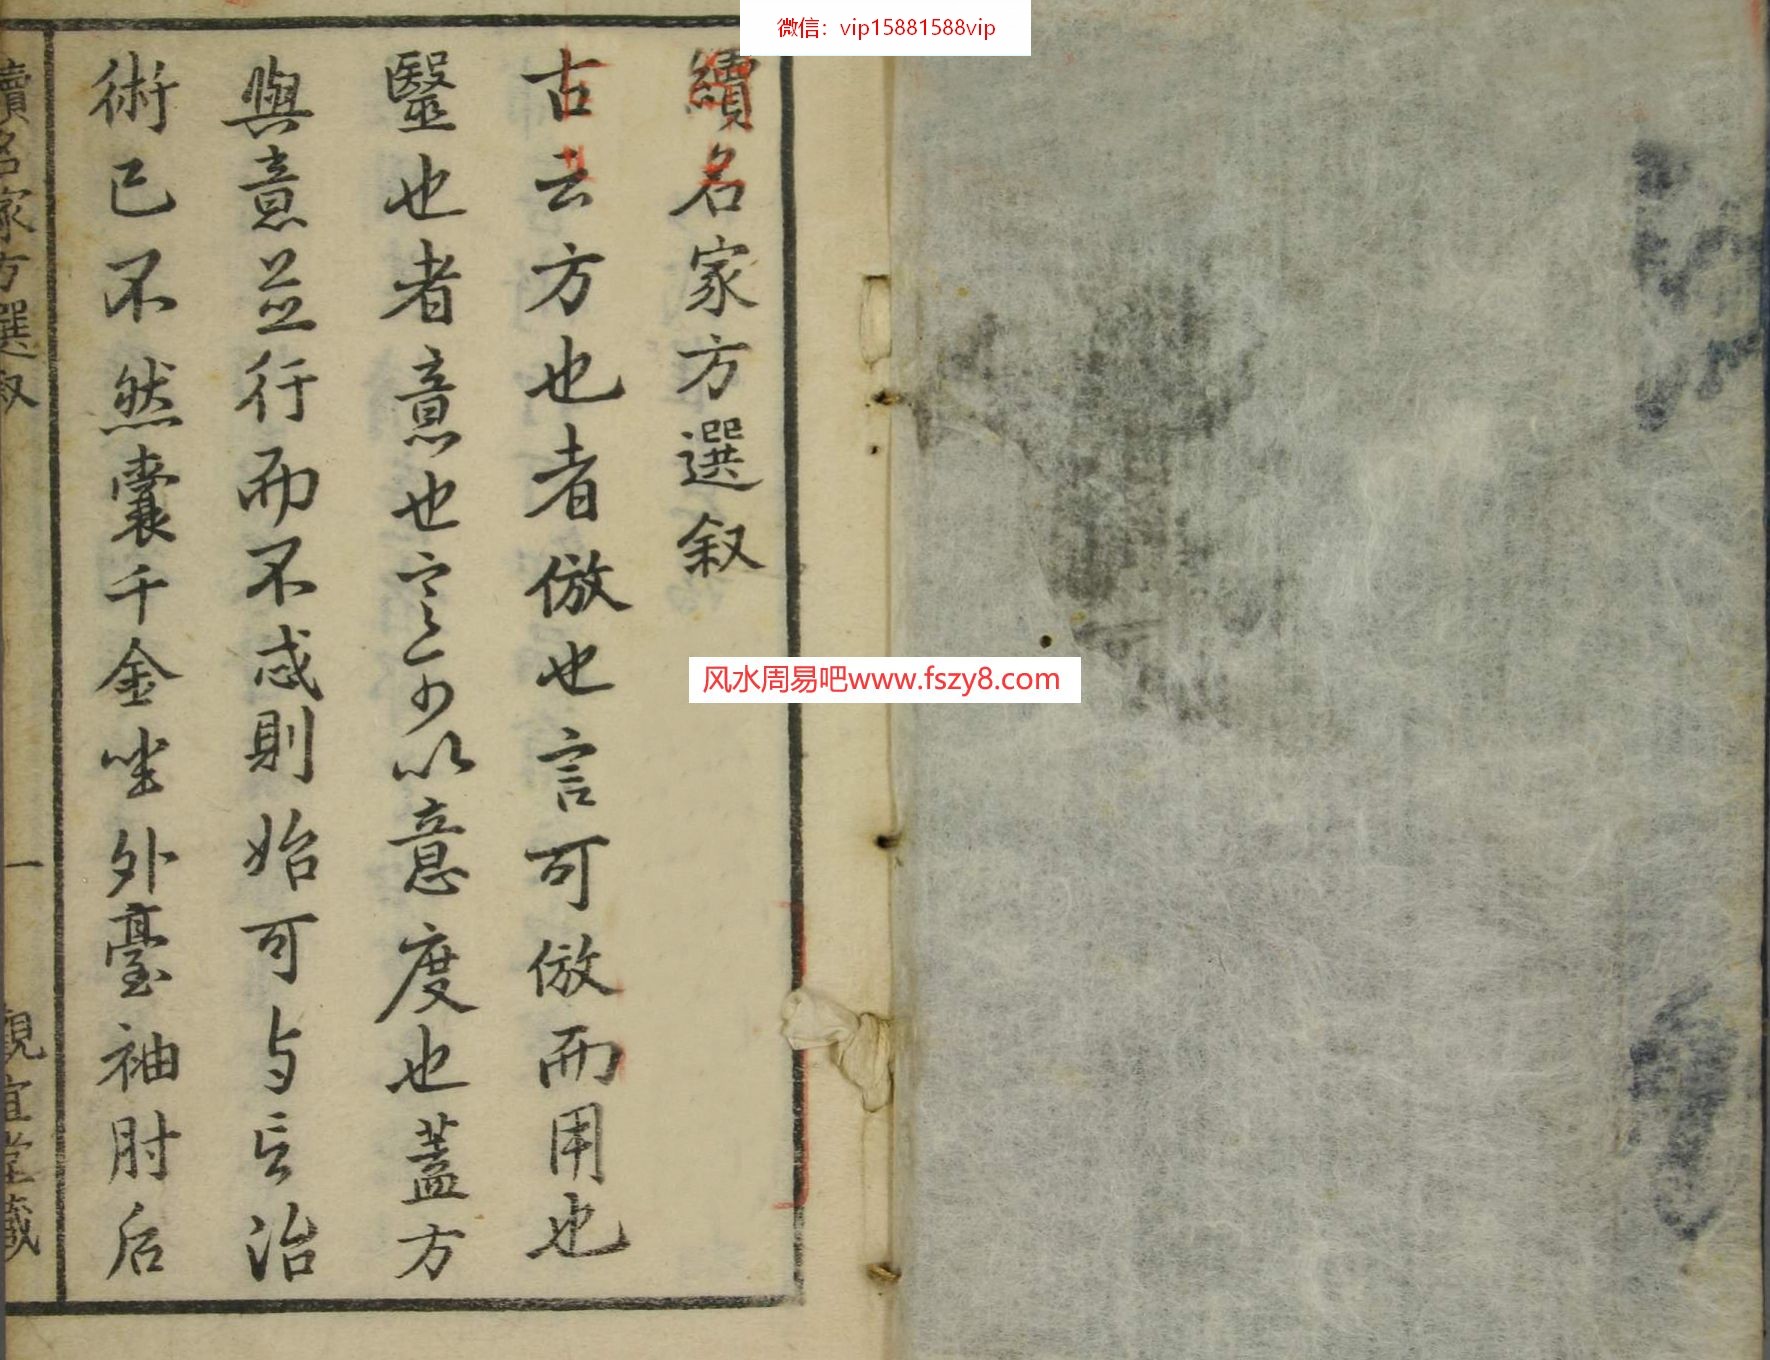 微信：vip15881588vip
續名家方選叙
古云方也者倣也言可倣而用也
毉也者意也言以意度也蓋方
與意並行而不惑則始可与言治
術已不然囊千金坐外臺袖肘后
續名家方選叙 一 觀宜堂藏
风水周易吧www.fszy8.com